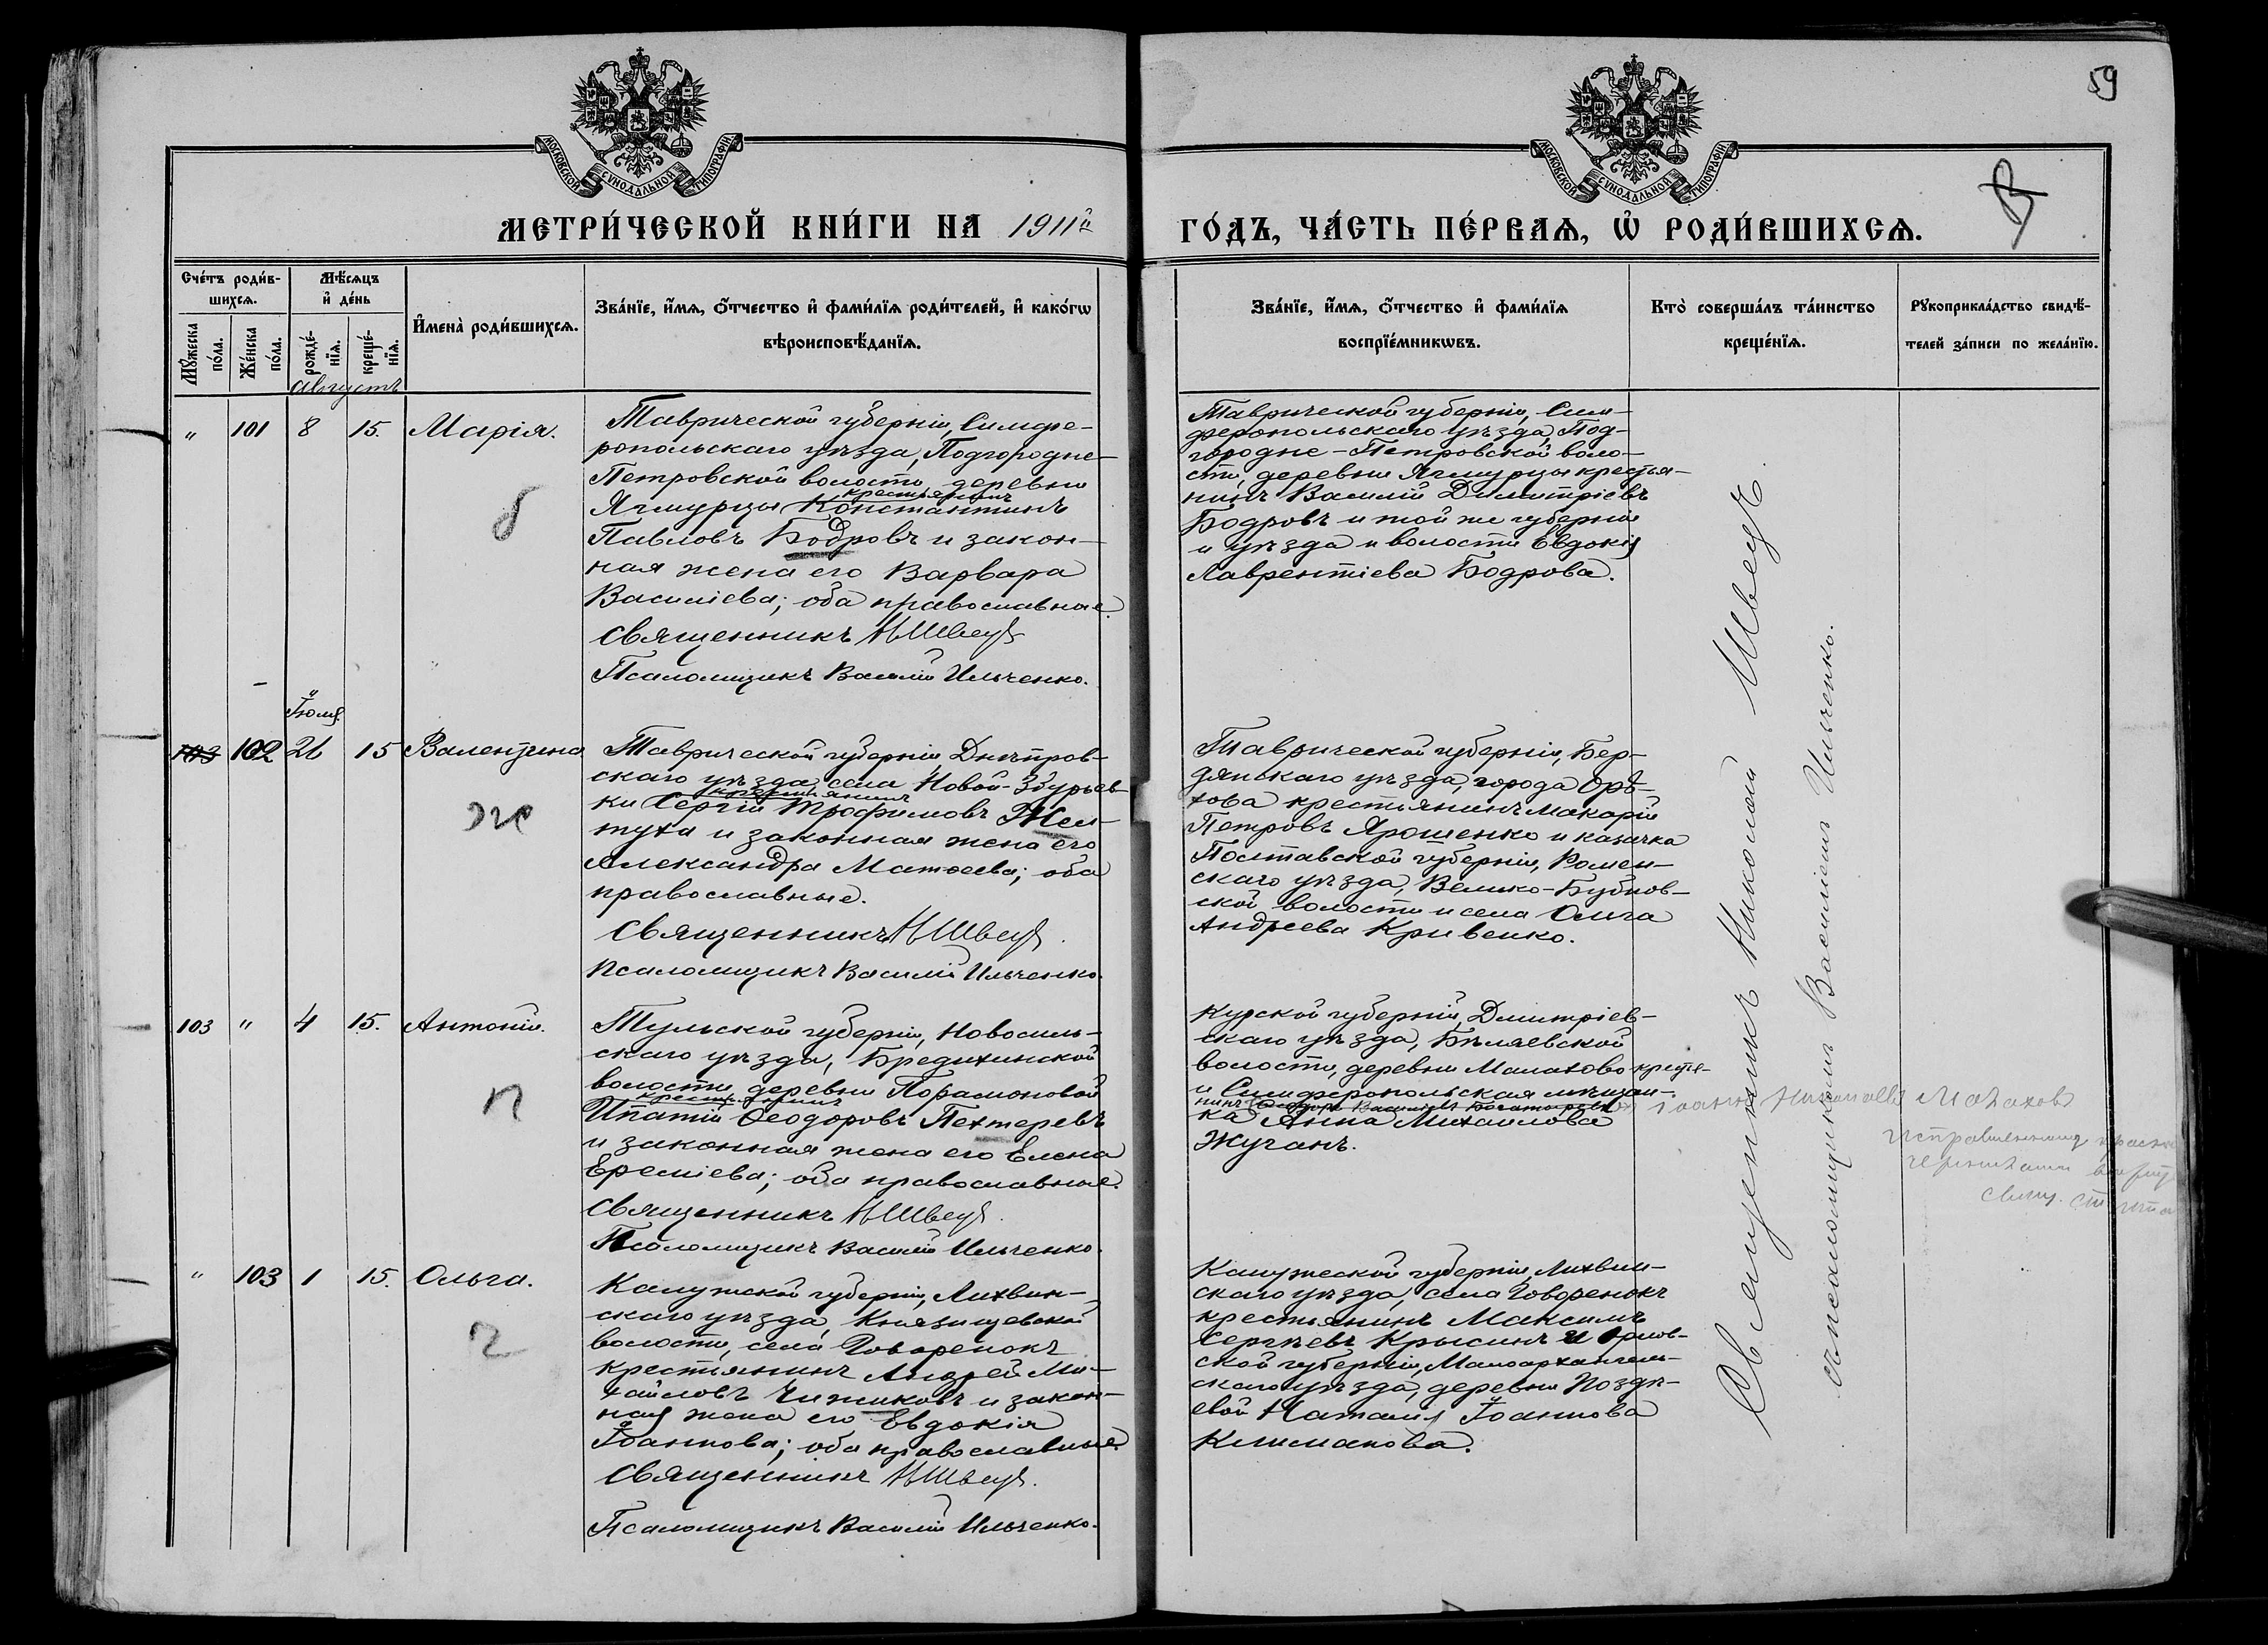 59
МОСКОВСКОЙ СУНОДАЛЬНОЙ ТИПОГРАФІИ
МОСКОВСКОЙ СУНОДАЛЬНОЙ ТИПОГРАФІИ
МЕТРИ́ЧЕСКОЙ КНИ́ГИ НА 1911й
ГО́ДЪ, ЧА́СТЬ ПЕ́РВАѦ, Ѡ҆ РОДИ́ВШИХСѦ.
Сче́тъ роди́в-
шихсѧ.
Мꙋ́жеска
по́ла.
Же́нска
по́ла.
Мѣ́сѧцъ
и҆ де́нь
рожде́-
нїѧ.
креще́-
нїѧ.
И҆мена̀ роди́вшихсѧ.
Зва́нїе, и҆́мѧ, ѻ҆́тчество и҆ фами́лїѧ роди́телей, и҆ како́гѡ
вѣроисповѣ́данїѧ.
Зва́нїе, и҆́мѧ, ѻ҆́тчество и҆ фами́лїѧ
воспрїе́мникѡвъ.
Кто̀ соверша́лъ та́инство
креще́нїѧ.
Рꙋкоприкла́дство свидѣ́-
телей за́писи по жела́нїю.
Августъ
" 101 8 15. Марія.
б
Таврической губерніи, Симфе-
ропольскаго уѣзда, Подгородне-
Петровской волости, деревни
крестьянинъ
Ячмурцы Константинъ
Павловъ Бодровъ и закон-
ная жена его Варвара
Василіева; оба православные.
Священникъ Н Швецъ
Псаломщикъ Василій Ильченко.
Таврической губерніи, Сим-
феропольскаго уѣзда, Под-
городне-Петровской воло-
сти, деревни Ячмурцы крестья-
нинъ Василій Димитріевъ
Бодровъ и той же губерніи
и уѣзда и волости Евдокія
Лаврентіева Бодрова.
Іюля
103 102 26 15 Валентина
Ж
Таврической губерніи, Днѣпров-
скаго уѣзда, села Новой-Збурьев-
крестьянинъ
ки Сергій Трофимовъ Жел-
туха и законная жена его
Александра Матѳеева; оба
православные.
Священникъ Н Швецъ.
Псаломщикъ Василій Ильченко.
Таврической губерніи, Бер-
дянскаго уѣзда, города Орѣ-
хова крестьянинъ Макарій
Петровъ Ярошенко и казачка
Полтавской губерніи, Ромен-
скаго уѣзда, Велико-Бубнов-
ской волости и села Ольга
Андреева Кривенко.
103 " 4 15. Антоній.
П
Тульской губерніи, Новосиль-
скаго уѣзда, Бредихинской
волости, деревни Порамоновой
крестьянинъ
Ипатій Ѳеодоровъ Пехтеревъ
и законная жена его Елена
Ереміева; оба православные.
Священникъ Н Швецъ.
Псаломщикъ Василій Ильченко.
Курской губерніи, Димитріев-
скаго уѣзда, Бѣляевской
волости, деревни Малахово кресть-
и Симферопольская мѣщан-
нинъ Василіевъ
ка Анна Михаилова
Жученъ.
Іоаннъ Николаевъ Малаховъ
" 103 1 15. Ольга.
Ч
Калужской губерніи, Лихвин-
скаго уѣзда, Князищевской
волости, села Говоренокъ
крестьянинъ Андрей Ми-
хайловъ Чижиковъ и закон-
ная жена его Евдокія
Іоаннова; оба православные.
Священникъ Н Швецъ.
Псаломщикъ Василій Ильченко.
Калужеской губерніи, Лихвин-
скаго уѣзда, села Говоренокъ
крестьянинъ Максимъ
Сергѣевъ Крысинъ и Орлов-
ской губерніи, Малоархангель-
скаго уѣзда, деревни Поздѣ-
евой Наталія Іоаннова
Климанова.
Священникъ Николай Швецъ.
съ псаломщикомъ Василіемъ Ильченко.